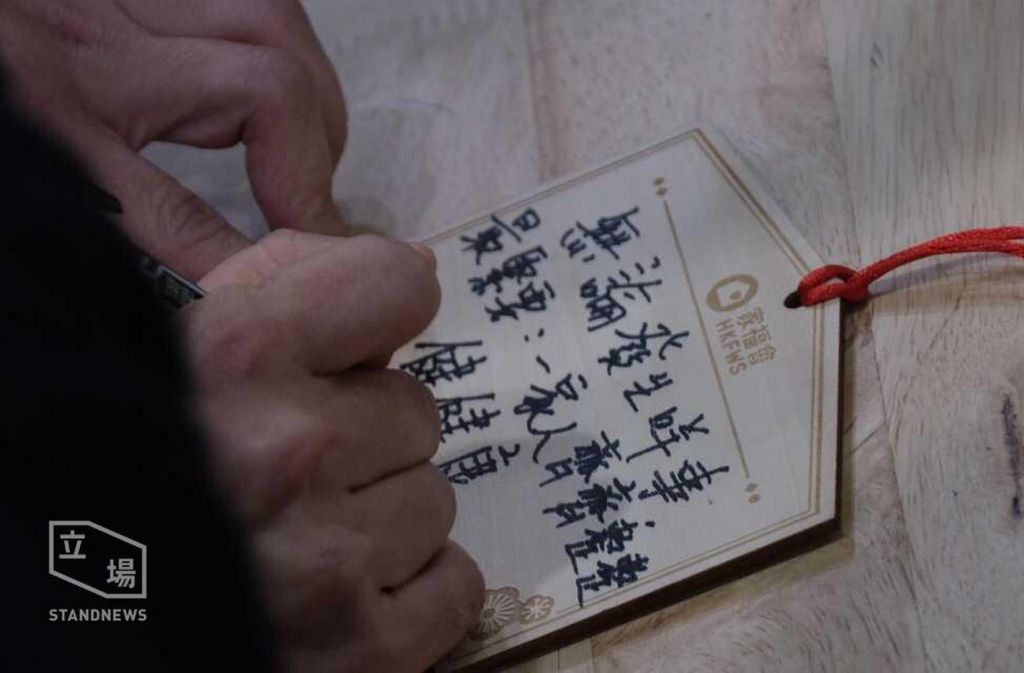 家福會
HKFWS
無論發生咩事
最緊要:一家人齊齊整整
健健康
立場
STANDNEWS